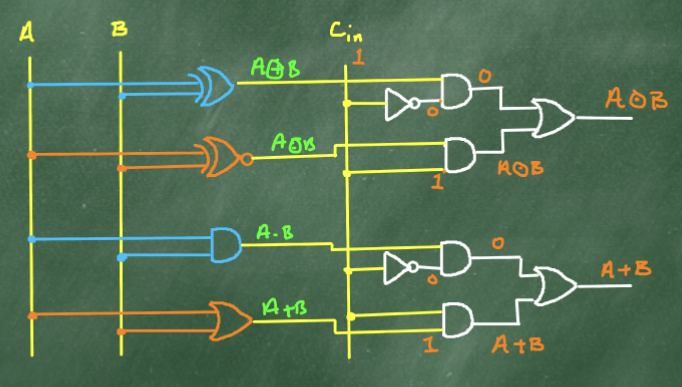 A B Cin
1
A⊕B 0
0 A⊙B
A⊙B
1 A⊙B
A·B 0
0 A+B
A+B
1 A+B